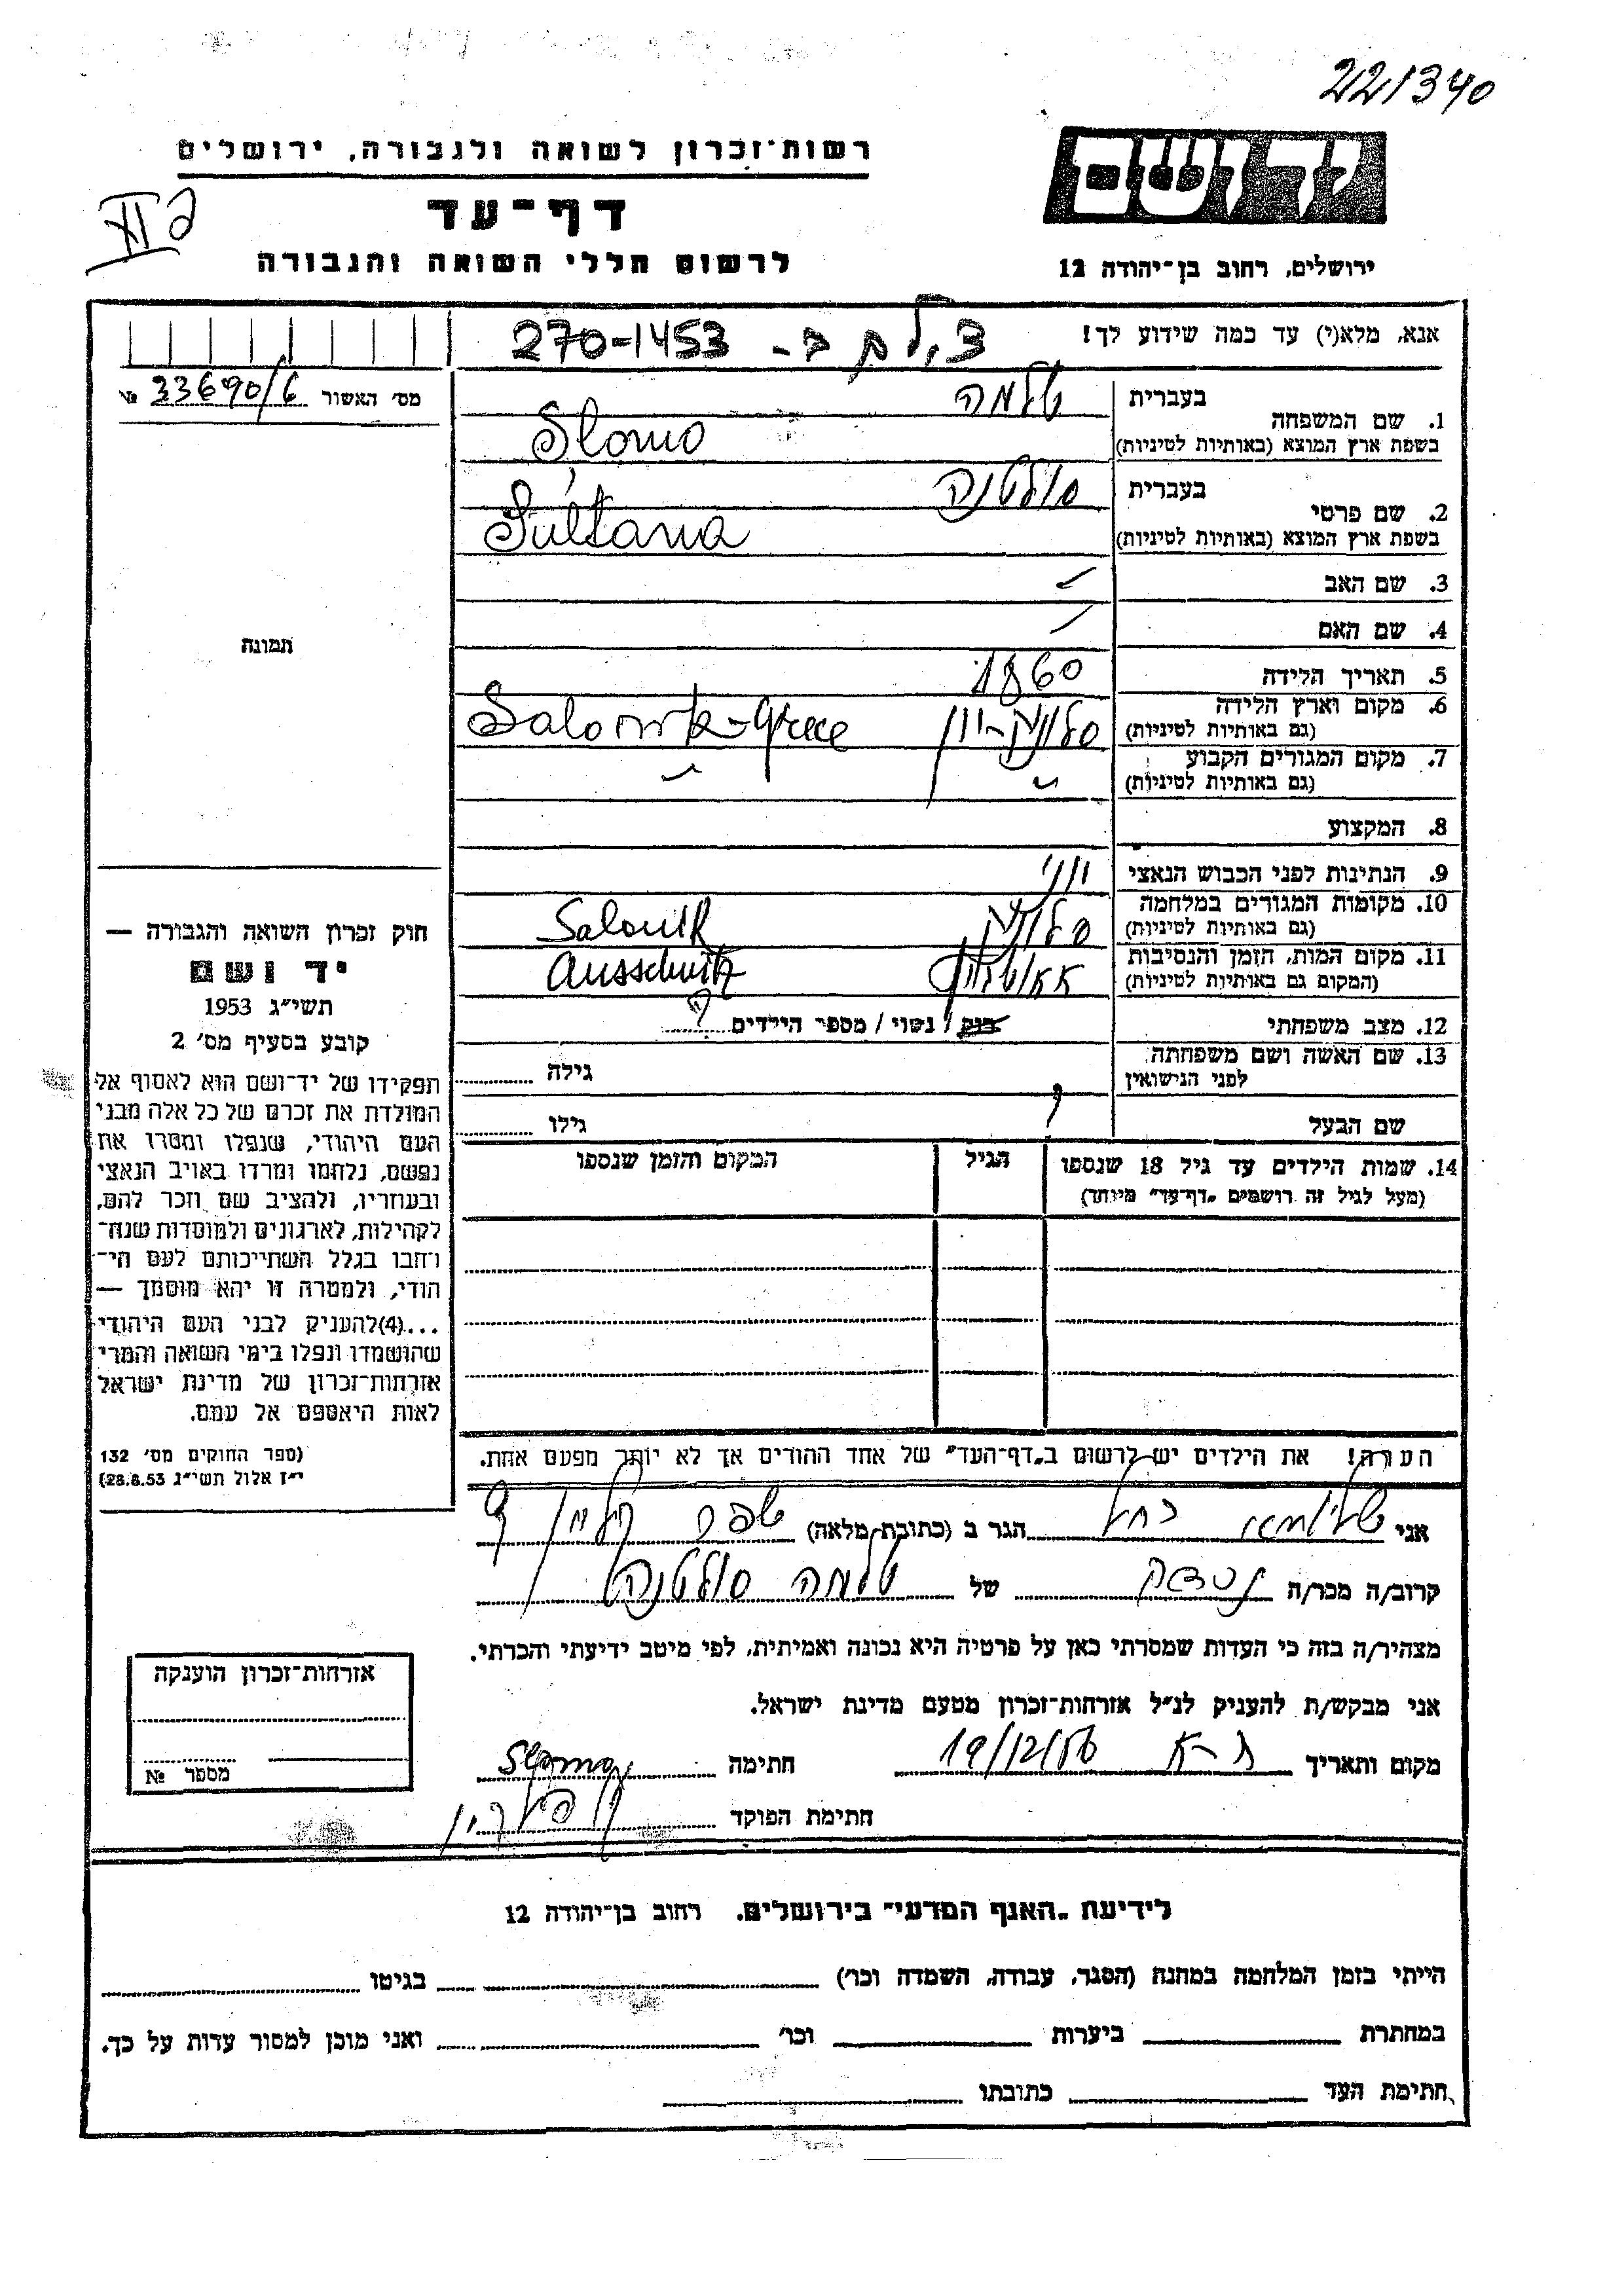 221340
רשות־זכרון לשואה ולגבורה, ירושלים
יד ושם
דף־עד
לרשום חללי השואה והגבורה
ירושלים, רחוב בן־יהודה 12
אנא, מלא(י) עד כמה שידוע לך!
270-1453
מס׳ האשור 33690/6 №
בעברית
1. שם המשפחה
שלמה
בשפת ארץ המוצא (באותיות לטיניות)
Slomo
בעברית
סולטנה
2. שם פרטי
בשפת ארץ המוצא (באותיות לטיניות)
Sultana
3. שם האב
4. שם האם
תמונה
5. תאריך הלידה 1860
6. מקום וארץ הלידה
(גם באותיות לטיניות)
סלוניק-יון Salonik-Grece
7. מקום המגורים הקבוע
(גם באותיות לטיניות)
8. המקצוע
9. הנתינות לפני הכבוש הנאצי יוני
10. מקומות המגורים במלחמה
(גם באותיות לטיניות)
סלוניק Salonik
11. מקום המות, הזמן והנסיבות
(המקום גם באותיות לטיניות)
Ausschwitz
12. מצב משפחתי רוק / נשוי / מספר הילדים ?
13. שם האשה ושם משפחתה
לפני הנישואין
גילה
שם הבעל ? גילו
14. שמות הילדים עד גיל 18 שנספו הגיל המקום והזמן שנספו
(מעל לגיל זה רושמים „דף־עד״ מיוחד)
חוק זכרון השואה והגבורה —
יד ושם
תשי״ג 1953
קובע בסעיף מס׳ 2
תפקידו של יד־ושם הוא לאסוף אל
המולדת את זכרם של כל אלה מבני
העם היהודי, שנפלו ומסרו את
נפשם, נלחמו ומרדו באויב הנאצי
ובעוזריו, ולהציב שם וזכר להם,
לקהילות, לארגונים ולמוסדות שנה־
רחבו בגלל השתייכותם לעם הי־
הודי, ולמטרה זו יהא מוסמך —
...(4)להעניק לבני העם היהודי
שהושמדו ונפלו בימי השואה והמרי
אזרחות־זכרון של מדינת ישראל
לאות היאספם אל עמם.
(ספר החוקים מס׳ 132
י״ז אלול תשי״ג 28.8.53)
הערה! את הילדים יש לרשום ב„דף־העד״ של אחד ההורים אך לא יותר מפעם אחת.
אני רחל הגר ב (כתובת מלאה)
קרוב/ה מכר/ה נכדה של שלמה סולטנה
מצהיר/ה בזה כי העדות שמסרתי כאן על פרטיה היא נכונה ואמיתית, לפי מיטב ידיעתי והכרתי.
אני מבקש/ת להעניק לנ״ל אזרחות־זכרון מטעם מדינת ישראל.
מקום ותאריך ת-א 19/12/56 חתימה
חתימת הפוקד
אזרחות־זכרון הוענקה
מספר №
לידיעת „האגף המדעי״ בירושלים, רחוב בן־יהודה 12
הייתי בזמן המלחמה במחנה (הסגר, עבודה, השמדה וכו׳) בגיטו
במחתרת ביערות וכו׳ ואני מוכן למסור עדות על כך.
חתימת העד כתובתו